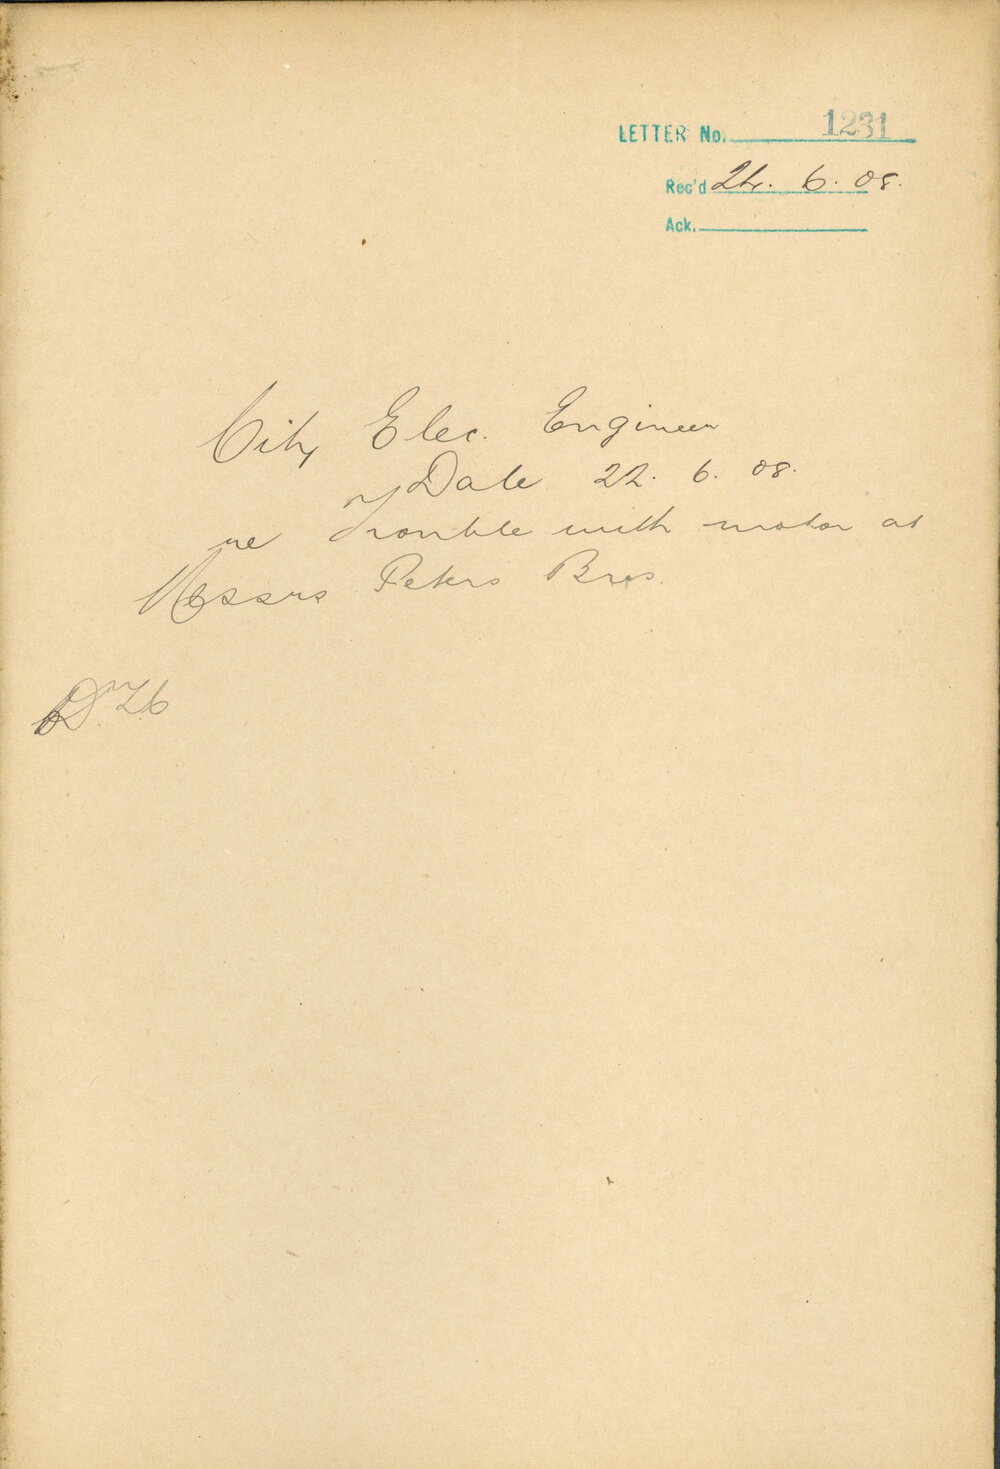 LETTER No. 1231
Rec'd 24. 6. 08.
Ack.
City Elec. Engineer
Date 22. 6. 08.
re Trouble with motor at
Messrs Peters Bros.